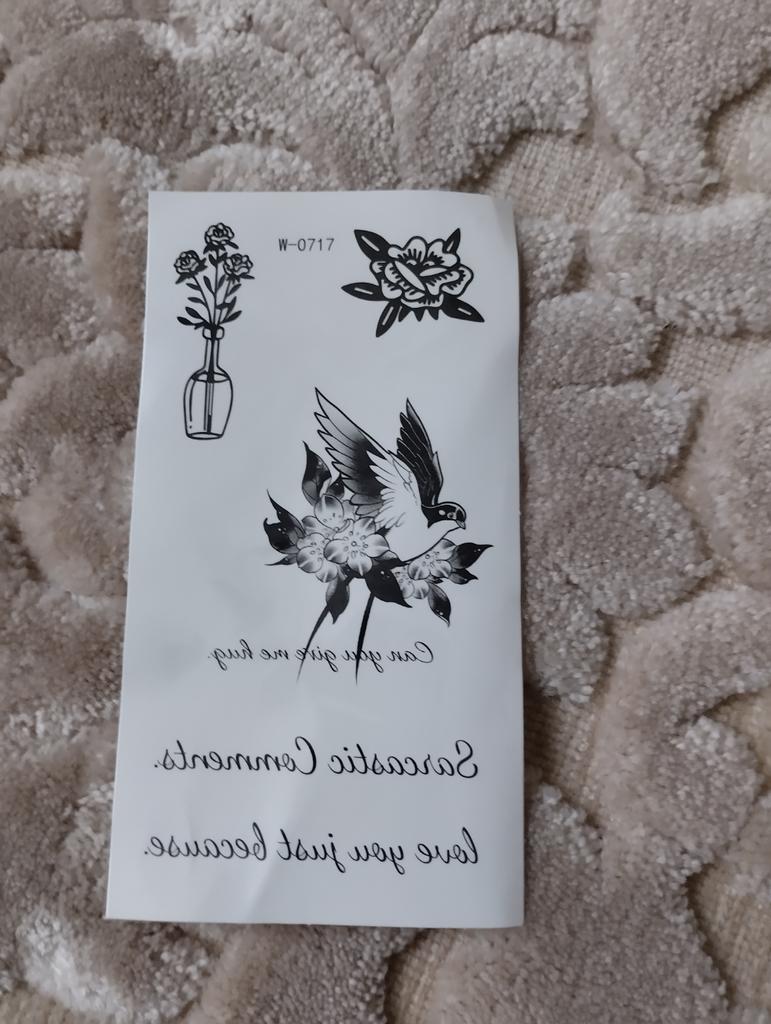 W-0717
Can you give me hug.
Sarcastic Comments.
love you just because.